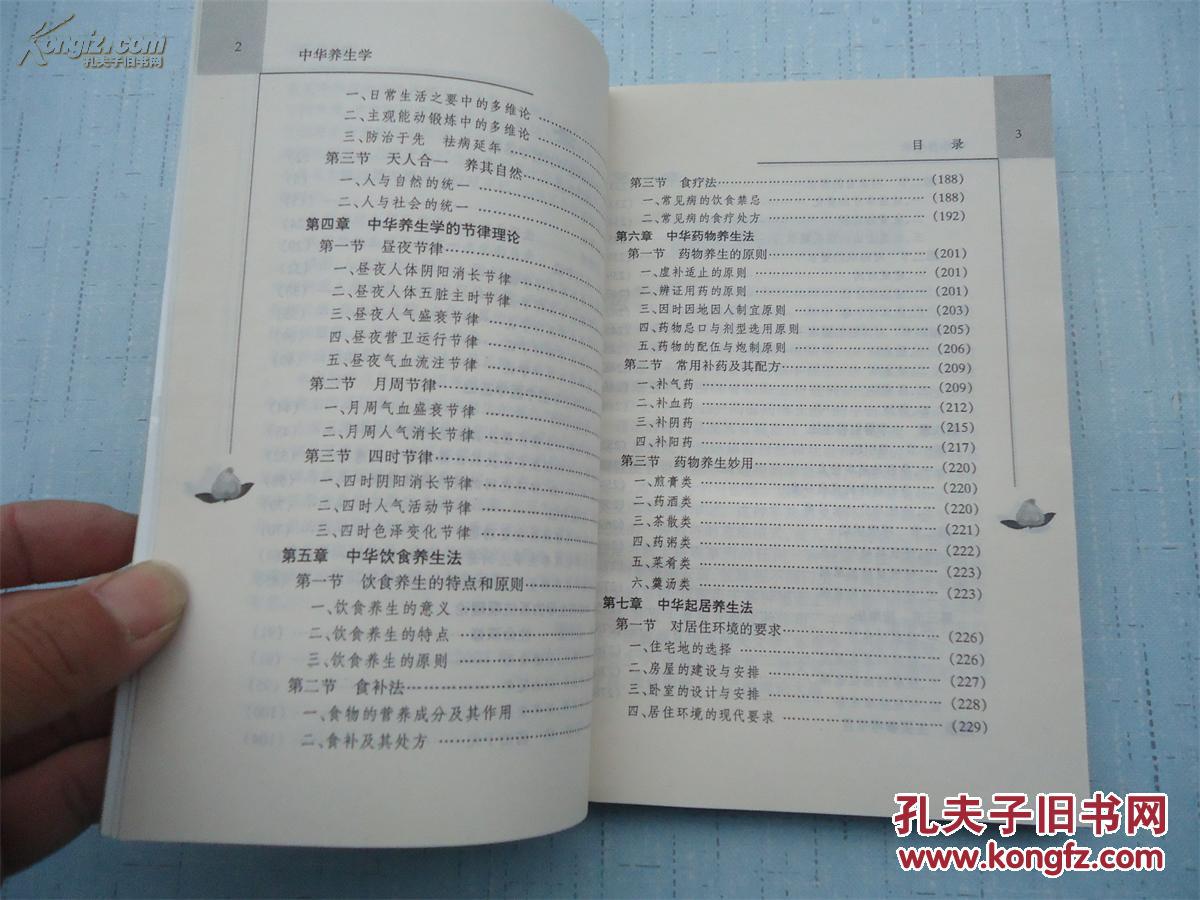 Kongfz.com
孔夫子旧书网
2
中华养生学
一、日常生活之要中的多维论
二、主观能动锻炼中的多维论
三、防治于先　祛病延年
第三节　天人合一　养其自然
一、人与自然的统一
二、人与社会的统一
第四章　中华养生学的节律理论
第一节　昼夜节律
一、昼夜人体阴阳消长节律
二、昼夜人体五脏主时节律
三、昼夜人气盛衰节律
四、昼夜营卫运行节律
五、昼夜气血流注节律
第二节　月周节律
一、月周气血盛衰节律
二、月周人气消长节律
第三节　四时节律
一、四时阴阳消长节律
二、四时人气活动节律
三、四时色泽变化节律
第五章　中华饮食养生法
第一节　饮食养生的特点和原则
一、饮食养生的意义
二、饮食养生的特点
三、饮食养生的原则
第二节　食补法
一、食物的营养成分及其作用
二、食补及其处方
目　录
3
第三节　食疗法(188)
一、常见病的饮食禁忌(188)
二、常见病的食疗处方(192)
第六章　中华药物养生法
第一节　药物养生的原则(201)
一、虚补适止的原则(201)
二、辨证用药的原则(201)
三、因时因地因人制宜原则(203)
四、药物忌口与剂型选用原则(205)
五、药物的配伍与炮制原则(206)
第二节　常用补药及其配方(209)
一、补气药(209)
二、补血药(212)
三、补阴药(215)
四、补阳药(217)
第三节　药物养生妙用(220)
一、煎膏类(220)
二、药酒类(220)
三、茶散类(221)
四、药粥类(222)
五、菜肴类(223)
六、羹汤类(223)
第七章　中华起居养生法
第一节　对居住环境的要求(226)
一、住宅地的选择(226)
二、房屋的建设与安排(227)
三、卧室的设计与安排(228)
四、居住环境的现代要求(229)
孔夫子旧书网
www.kongfz.com